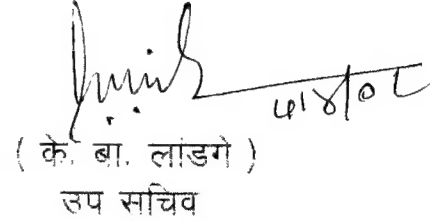 ५।४/०८
( के. बा. लांडगे )
उप सचिव